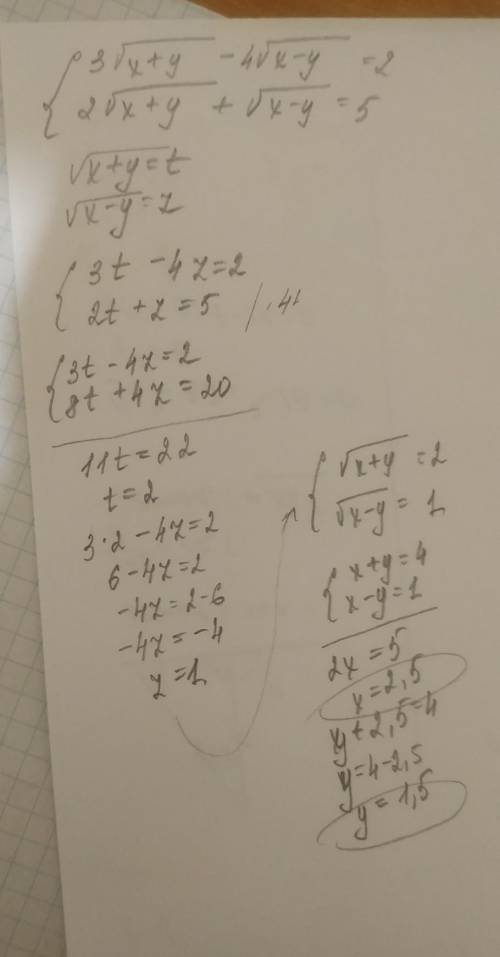 3√(x+y) - 4√(x-y) = 2
2√(x+y) + √(x-y) = 5
√(x+y) = t
√(x-y) = z
3t - 4z = 2
2t + z = 5 /·4
3t - 4z = 2
8t + 4z = 20
11t = 22
t = 2
3·2 - 4z = 2
6 - 4z = 2
-4z = 2-6
-4z = -4
z = 1
√(x+y) = 2
√(x-y) = 1
x+y = 4
x-y = 1
2x = 5
x = 2,5
y + 2,5 = 4
y = 4-2,5
y = 1,5